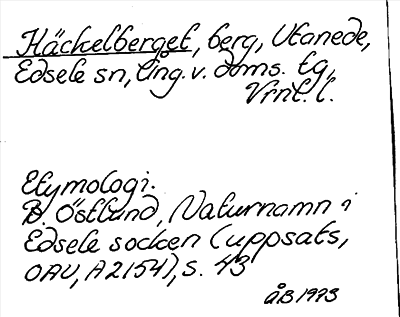 Häckelberget, berg, Utanede,
Edsele sn, Ång. v. doms. tg,
Vrnl. l.
Etymologi.
B. Östlund, Naturnamn i
Edsele socken (uppsats,
OAU, A2154), s. 43
ÅB 1973